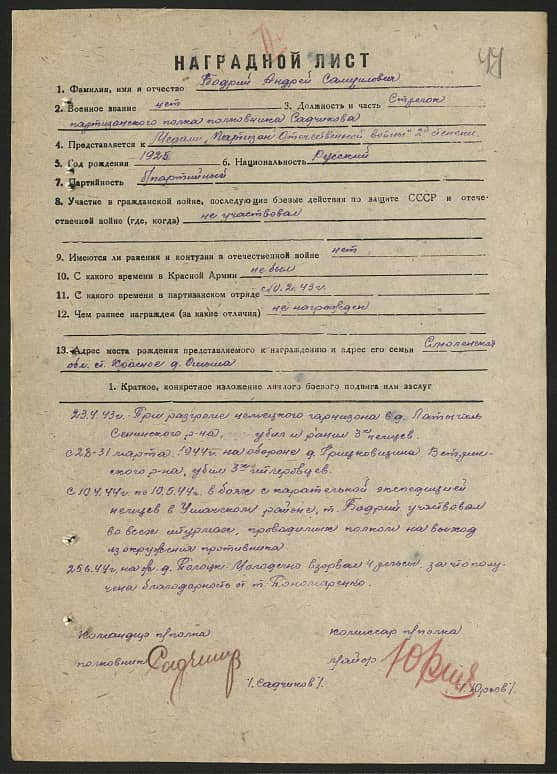 44
НАГРАДНОЙ ЛИСТ
1. Фамилия, имя и отчество Бодрий Андрей Самуилович
2. Военное звание нет 3. Должность и часть Стрелок
партизанского полка полковника Садчикова
4. Представляется к Медали „Партизан Отечественной войны" 2й степени.
5. Год рождения 1925 6. Национальность Русский
7. Партийность б/партийный
8. Участие в гражданской войне, последующие боевые действия по защите СССР и отече-
ственной войне (где, когда) не участвовал
9. Имеются ли ранения и контузии в отечественной войне нет
10. С какого времени в Красной Армии не был
11. С какого времени в партизанском отряде с 10.2.43г.
12. Чем раннее награжден (за какие отличия) не награжден
13. Адрес места рождения представляемого к награждению и адрес его семьи Смоленской
обл. ст. Красное д.
1. Краткое, конкретное изложение личного боевого подвига или заслуг
23.4.43г. При разгроме немецкого гарнизона в д. Латыголь
Сеннинского р-на, убил и ранил 3х немцев.
с 28-31 марта 1944г. на обороне д. Грицковщина Ветрин-
ского р-на, убил 3х гитлеровцев.
с 10.4.44г. по 10.5.44г. в боях с карательной экспедицией
немцев в Ушачском районе, т. Бодрий участвовал
во всех штурмах, проводимых полком на выход
из окружения противника.
25.6.44г. на ж.д. Полоцк-Молодечно взорвал 4 рельсы. за что полу-
чена благодарность от т. Пономаренко.
Командир п/полка комиссар п/полка
полковник Садчиков майор Юрков
/.Садчиков/. /.Юрков/.